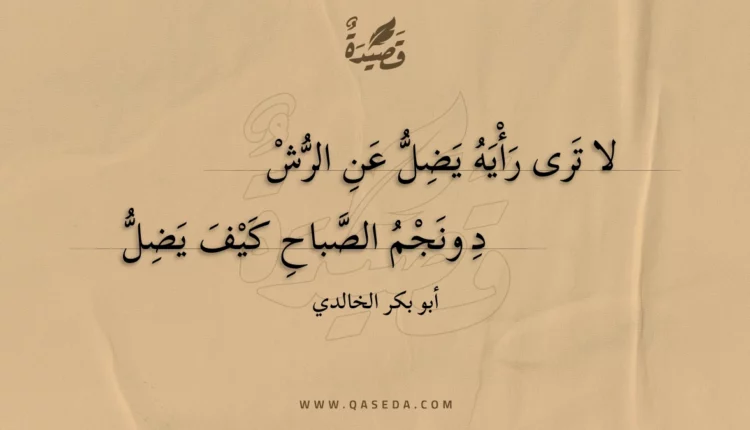 قَصِيْدَةٌ
لا تَرى رَأْيَهُ يَضِلُّ عَنِ الرُّشْ
دِ ونَجْمُ الصَّباحِ كَيْفَ يَضِلُّ
أبو بكر الخالدي
WWW.QASEDA.COM